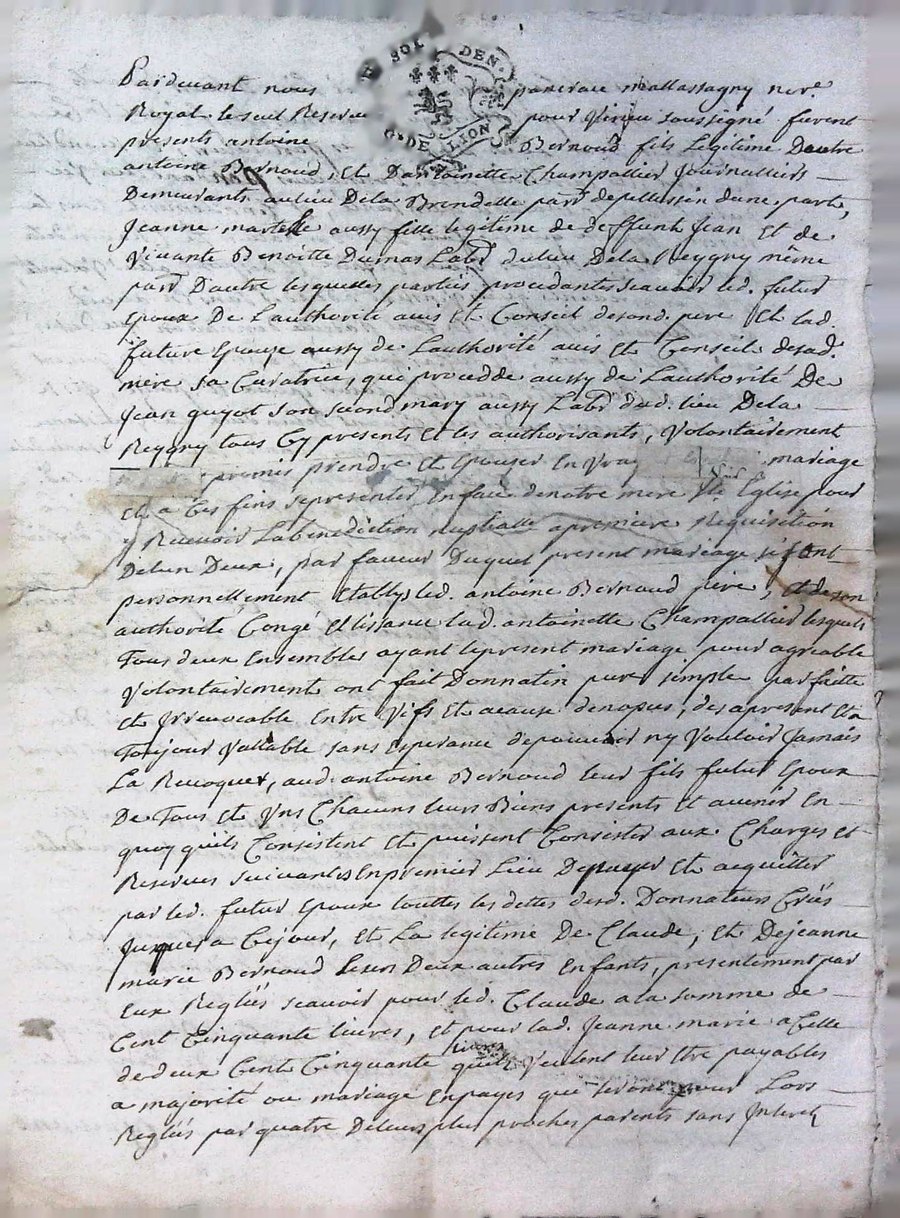 SOL DEN
G. DE LION
Pardevant nous pancrace mallassagny no.re
Royal le seul Reservé pour Virieu soussigné furent
présents antoine Bernoud fils Legitime Dautre
antoine Bernoud, et Dantoinette Champallier Journalliers
Demeurants aulieu Dela Brendelle parr. depellussin dune part,
Jeanne martelle aussy fille legitime de deffunt Jean et de
Vivante Benoitte Dumas Labr. dulieu Dela Reygny même
parr. Dautre lesquelles parties procedantes scavoir led. futur
Epoux De Lauthorité avis et Conseil desond. pere et lad.
future Epouse aussy de Lauthorité avis et Conseil desad.
mere sa Curatrice, qui procedde aussy de Lauthorité De
Jean guyot son second mary aussy Labr. dud. lieu Dela
Reygny tous Cy presents et les authorisants, Volontairement
promis prendre et Epouser En Vray mariage
et a Ces fins se representer Enface denotre mere Ste Eglise pour
y Recevoir Labenediction nuptialle apremiere Requisition
Delun Deux, par faveur Duquel present mariage se sont
personnellement Etablys led. antoine Bernoud pere, et de son
authorité Congé et lissance lad. antoinette Champallier lesquels
Tous deux Ensembles ayant lepresent mariage pour agreable
Volontairement ont fait Donnation pure simple parfaitte
et Irrevocable Entre Vifs et acause denopces, des apresent et a
Toujour Vallable sans Esperance depouvoir ny Vouloir Jamais
La Revoquer, aud. antoine Bernoud leur fils futur Epoux
De Tous et Uns Chacuns leurs Biens presents et avenir En
quoy quils Consistent et puissent Consister aux Charges et
Reserves suivantes En premier Lieu Depayer et acquitter
par led. futur Epoux touttes les dettes desd. Donnateurs Créés
Jusques a Cejour, et La legitime De Claude, et Dejeanne
marie Bernoud Leurs Deux autres Enfants, presentement par
Eux Reglés scavoir pour led. Claude a la somme de
Cent Cinquante livres, et pour lad. Jeanne marie a Celle
de deux Cent Cinquante livres quils Veulent leur être payables
a majorité ou mariage En payes que seront pour Lors
Reglés par quatre Deleurs plus proches parents sans Interet